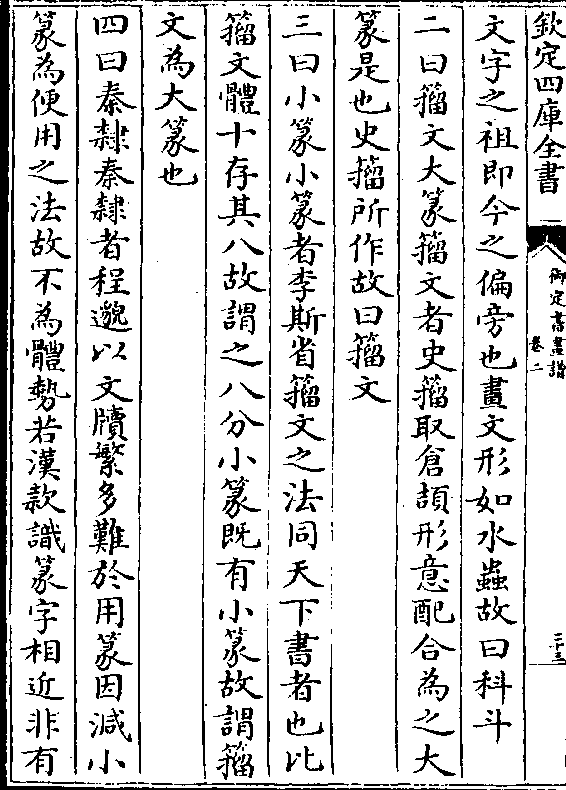 欽定四庫全書
御定書畫譜
卷二
三十三
文字之祖即今之偏旁也畫文形如水蟲故曰科斗
二曰籀文大篆籀文者史籀取倉頡形意配合為之大
篆是也史籀所作故曰籀文
三曰小篆小篆者李斯省籀文之法同天下書者也比
籀文體十存其八故謂之八分小篆既有小篆故謂籀
文為大篆也
四曰秦隸秦隸者程邈以文牘繁多難於用篆因減小
篆為便用之法故不為體勢若漢款識篆字相近非有